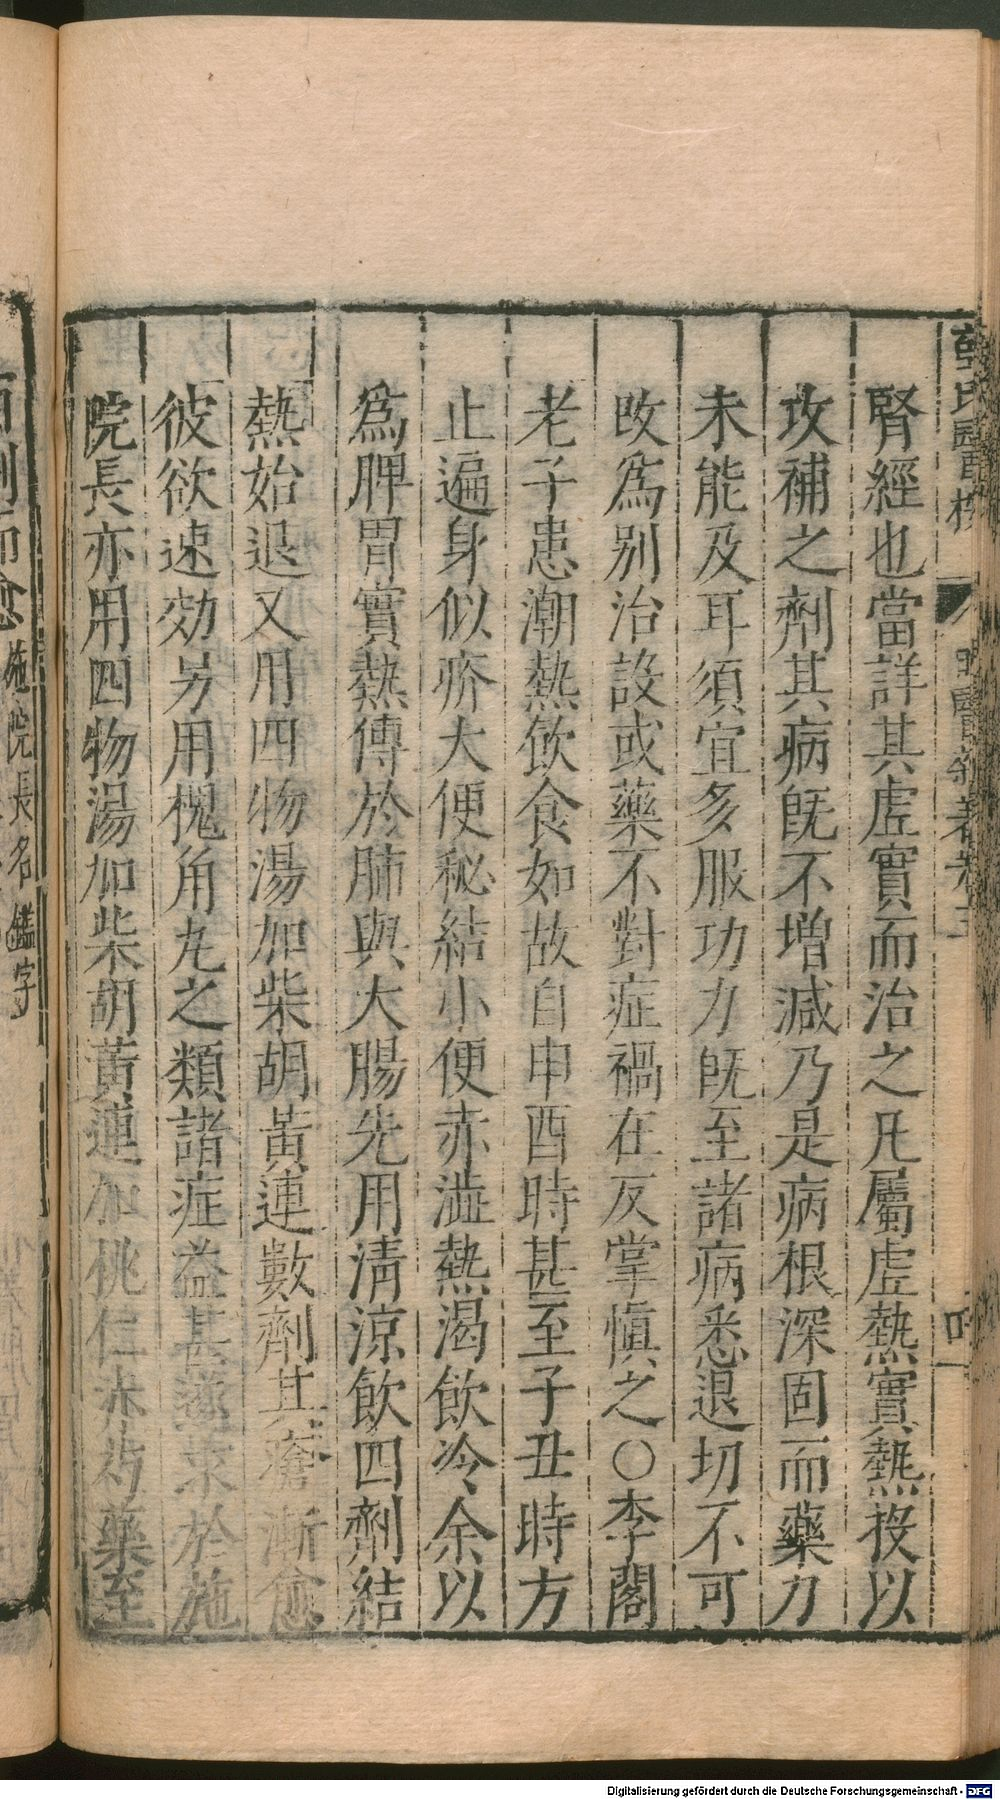 腎經也當詳其虛實而治之凡屬虛熱實熱投以
攻補之劑其病旣不增減乃是病根深固而藥力
未能及耳須宜多服功力旣至諸病悉退切不可
改爲别治設或藥不對症禍在反掌愼之〇李閣
老子患潮熱飲食如故自申酉時甚至子丑時方
止遍身似疥大便秘結小便赤澁熱渴飲冷余以
爲脾胃實熱傳於肺與大腸先用淸涼飲四劑結
熱始退又用四物湯加柴胡黃連數劑其瘡漸愈
彼欲速効另用槐角丸之類諸症益甚遂求於施
院長亦用四物湯加柴胡黃連加桃仁赤芍藥至
百劑而愈施院長名鑑字
Digitalisierung gefördert durch die Deutsche Forschungsgemeinschaft - DFG